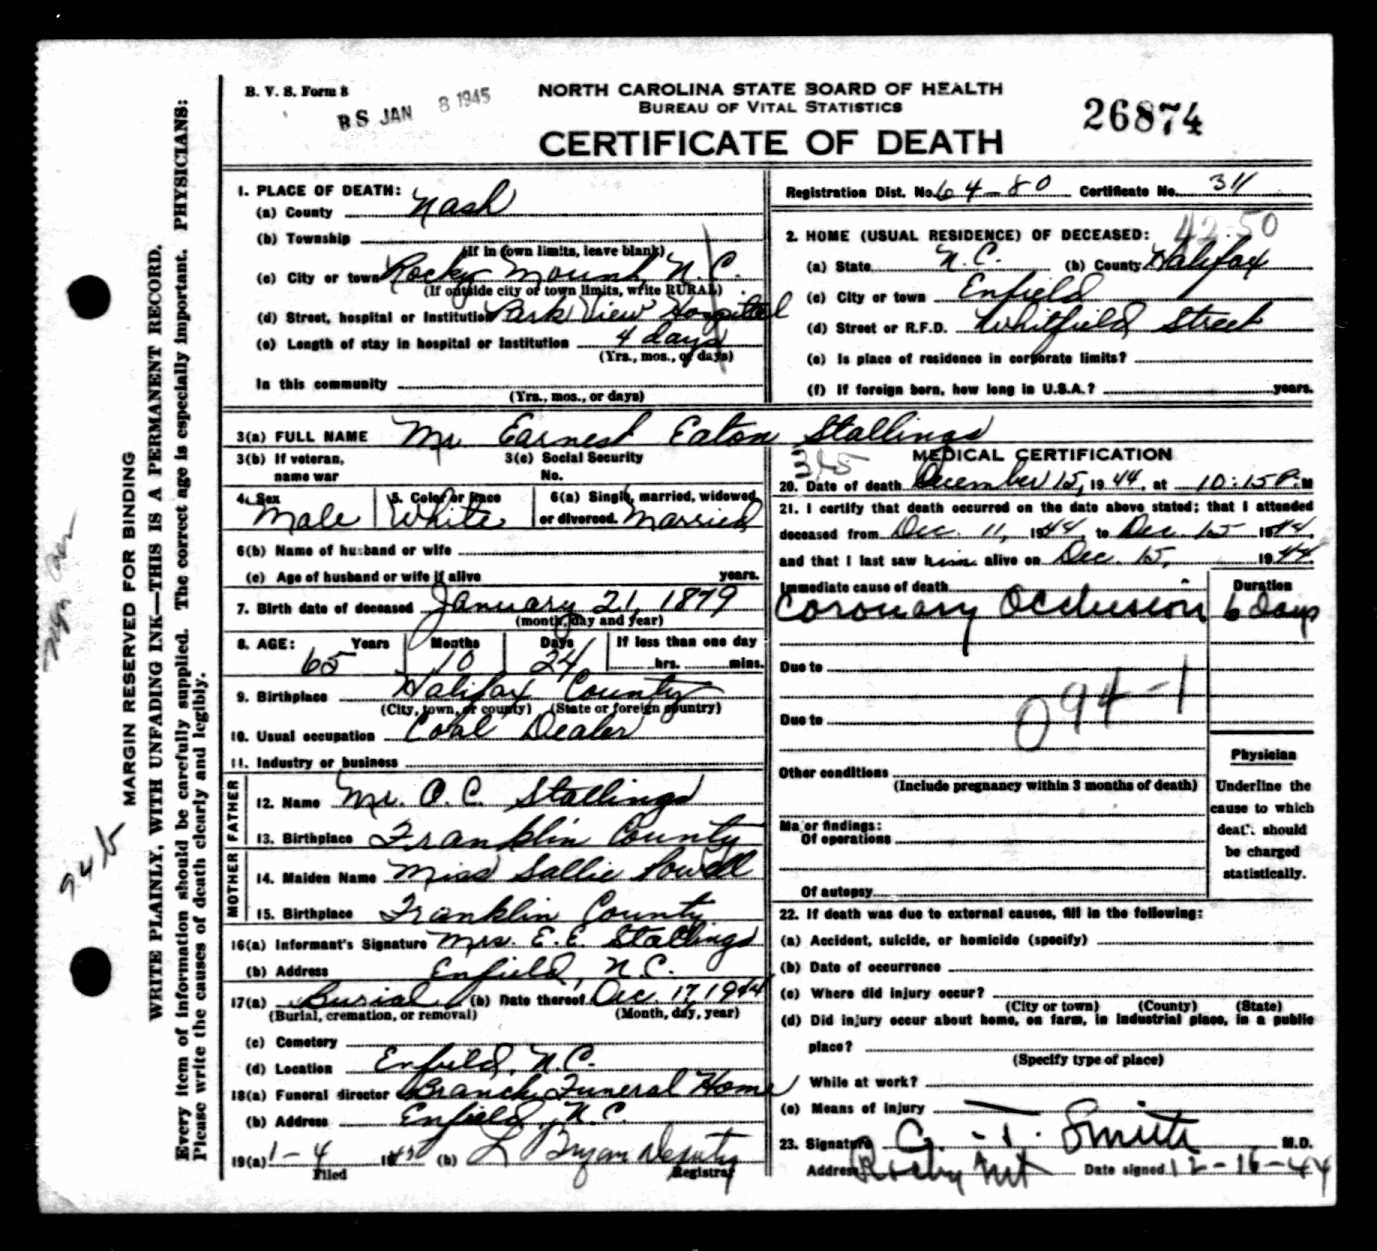 B. V. S. Form 8
BS JAN 8 1945
NORTH CAROLINA STATE BOARD OF HEALTH
BUREAU OF VITAL STATISTICS
CERTIFICATE OF DEATH
26874
MARGIN RESERVED FOR BINDING
WRITE PLAINLY, WITH UNFADING INK—THIS IS A PERMANENT RECORD.
Every item of information should be carefully supplied. The correct age is especially important. PHYSICIANS:
Please write the causes of death clearly and legibly.
94b
1. PLACE OF DEATH:
(a) County Nash
(b) Township
(If in town limits, leave blank)
(c) City or town Rocky Mount, N.C.
(If outside city or town limits, write RURAL)
(d) Street, hospital or Institution Park View Hospital
(e) Length of stay in hospital or Institution 4 days
(Yrs., mos., or days)
In this community
(Yrs., mos., or days)
Registration Dist. No. 64-80 Certificate No. 311
42-50
2. HOME (USUAL RESIDENCE) OF DECEASED:
(a) State N.C. (b) County Halifax
(c) City or town Enfield
(d) Street or R.F.D. Whitfield Street
(e) Is place of residence in corporate limits?
(f) If foreign born, how long in U.S.A.? years.
3(a) FULL NAME Mr. Earnest Eaton Stallings
3(b) If veteran, name war
3(c) Social Security No.
4. Sex Male
5. Color or Race White
6(a) Single, married, widowed, or divorced. Married
6(b) Name of husband or wife
(c) Age of husband or wife if alive years.
7. Birth date of deceased January 21, 1879
(month, day and year)
8. AGE: Years 65 Months 10 Days 24 If less than one day hrs. mins.
9. Birthplace Halifax County
(City, town, or county) (State or foreign country)
10. Usual occupation Coal Dealer
11. Industry or business
FATHER
12. Name Mr. O. C. Stallings
13. Birthplace Franklin County
MOTHER
14. Maiden Name Miss Sallie Powell
15. Birthplace Franklin County
16(a) Informant's Signature Mrs. E. E. Stallings
(b) Address Enfield, N.C.
17(a) Burial (b) Date thereof Dec. 17, 1944
(Burial, cremation, or removal) (Month, day, year)
(c) Cemetery
(d) Location Enfield, N.C.
18(a) Funeral director Branch Funeral Home
(b) Address Enfield, N.C.
19(a) 1-4 1945 (b) L Bryan Deputy
Filed Registrar
MEDICAL CERTIFICATION
20. Date of death December 15, 1944, at 10:15 P.M
21. I certify that death occurred on the date above stated; that I attended
deceased from Dec. 11, 1944, to Dec. 15 1944.
and that I last saw him alive on Dec. 15, 1944.
Immediate cause of death Duration
Coronary Occlusion 6 Days
Due to
094-1
Due to
Other conditions
(Include pregnancy within 3 months of death)
Major findings:
Of operations
Of autopsy
Physician
Underline the
cause to which
death should
be charged
statistically.
22. If death was due to external causes, fill in the following:
(a) Accident, suicide, or homicide (specify)
(b) Date of occurrence
(c) Where did injury occur?
(City or town) (County) (State)
(d) Did injury occur about home, on farm, in industrial place, in a public
place?
(Specify type of place)
While at work?
(e) Means of injury
23. Signature C. T. Smith M.D.
Address Rocky Mt Date signed 12-16-44